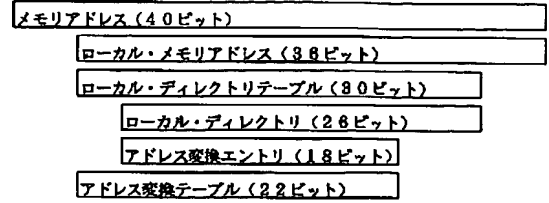 メモリアドレス（４０ビット）
ローカル・メモリアドレス（３６ビット）
ローカル・ディレクトリテーブル（３０ビット）
ローカル・ディレクトリ（２６ビット）
アドレス変換エントリ（１８ビット）
アドレス変換テーブル（２２ビット）